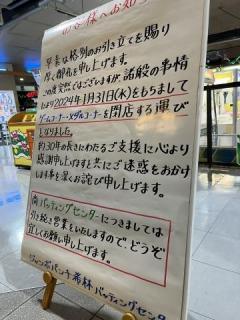 お客様へお知らせ
平素は格別のお引き立てを賜り
厚く御礼を申し上げます。
この度突然ではございますが、諸般の事情
により2024年1月31日(水)をもちまして
ゲームコーナー・メダルコーナーを閉店する運び
となりました。
約30年の長きにわたるご支援に心より
感謝申し上げますと共にご迷惑をおかけ
します事を深くお詫び申し上げます。
尚バッティングセンターにつきましては
引き続き営業をいたしますので、どうぞ
宜しくお願い申し上げます。
ジャンボパンチ希林バッティングセンター